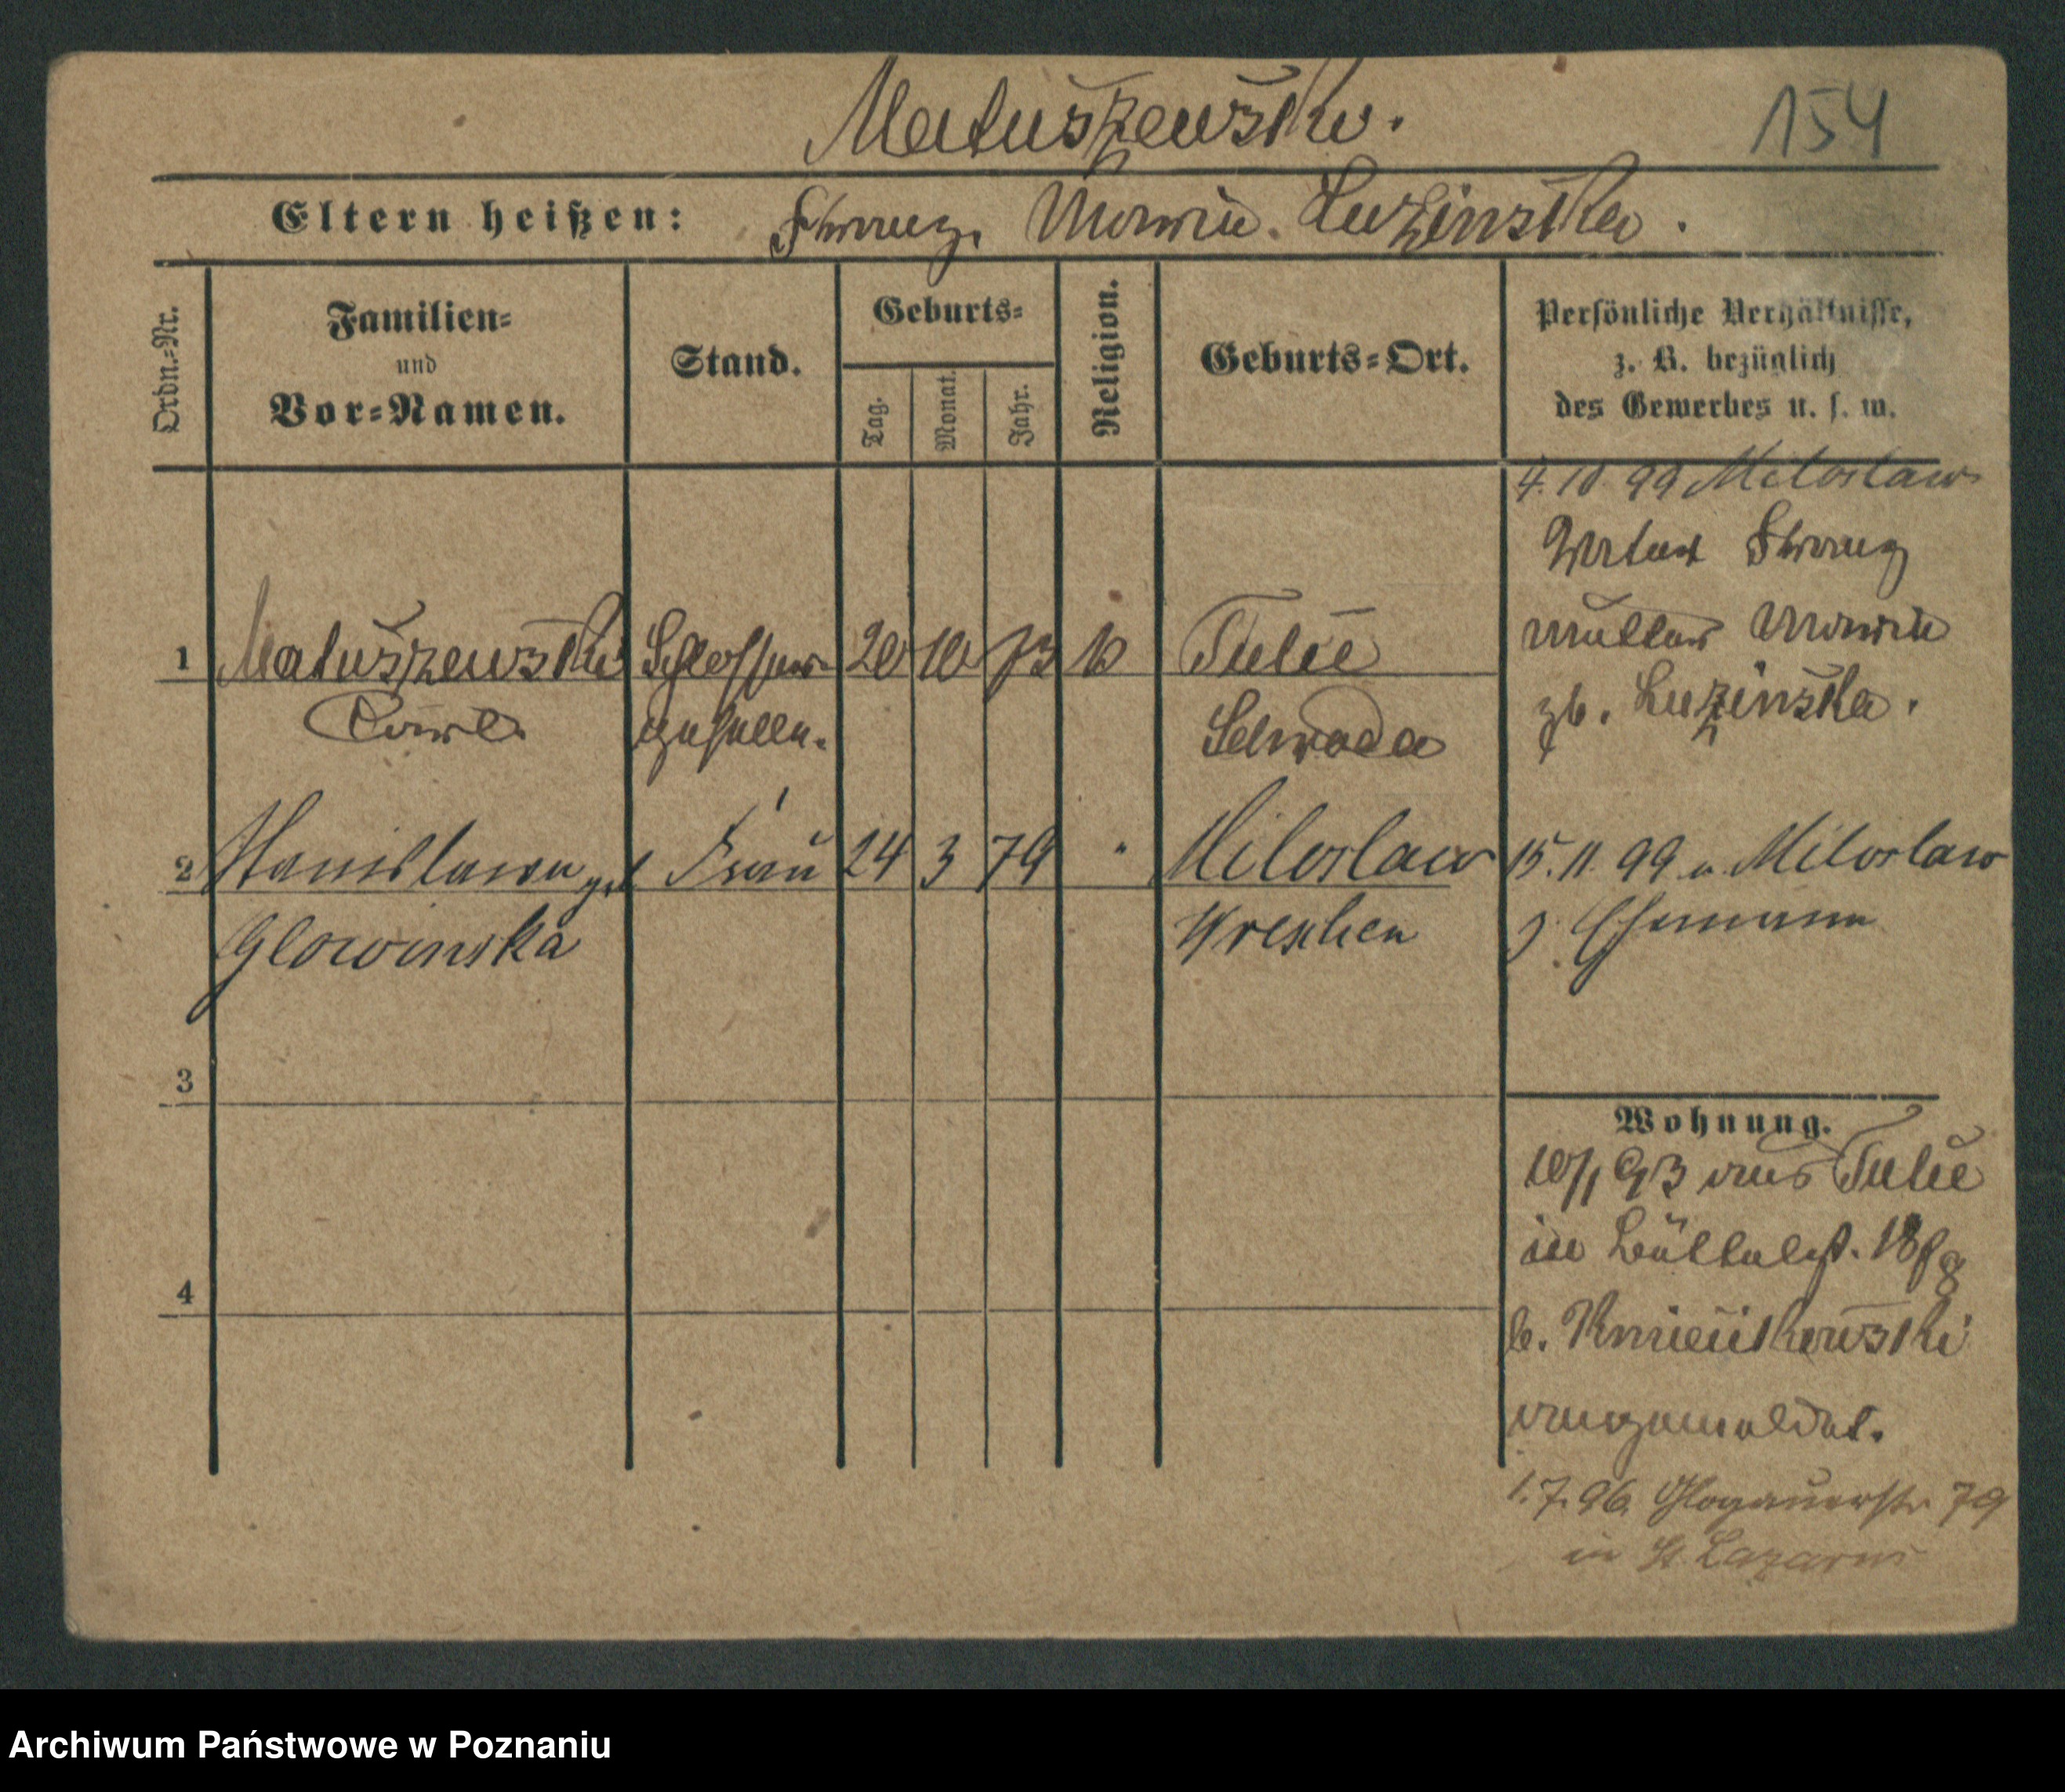 Matuszewski.
154
Eltern heißen: Franz. Marie. Luzinska.
Ordn.-Nr.
Familien-
und
Vor-Namen.
Stand.
Geburts-
Tag.
Monat.
Jahr.
Religion.
Geburts-Ort.
Persönliche Verhältnisse,
z. B. bezüglich
des Gewerbes u. s. w.
4. 10. 99 Miloslaw
Vater Franz
Mutter Marie
gb. Luzinska.
1 Matuszewski Schlosser 20 10 73 k Tulce
Carl geselle. Schroda
2 Stanislawa geb Frau 24 3 79 " Miloslaw
Glowinska Wreschen
15. 11. 99 v. Miloslaw
z. Ehemann
3
4
Wohnung.
10/1 93 aus Tulce
in Büttelst. 18/8
b.
angemeldet.
1. 7. 96. Glogauerstr. 79
in St. Lazarus
Archiwum Państwowe w Poznaniu